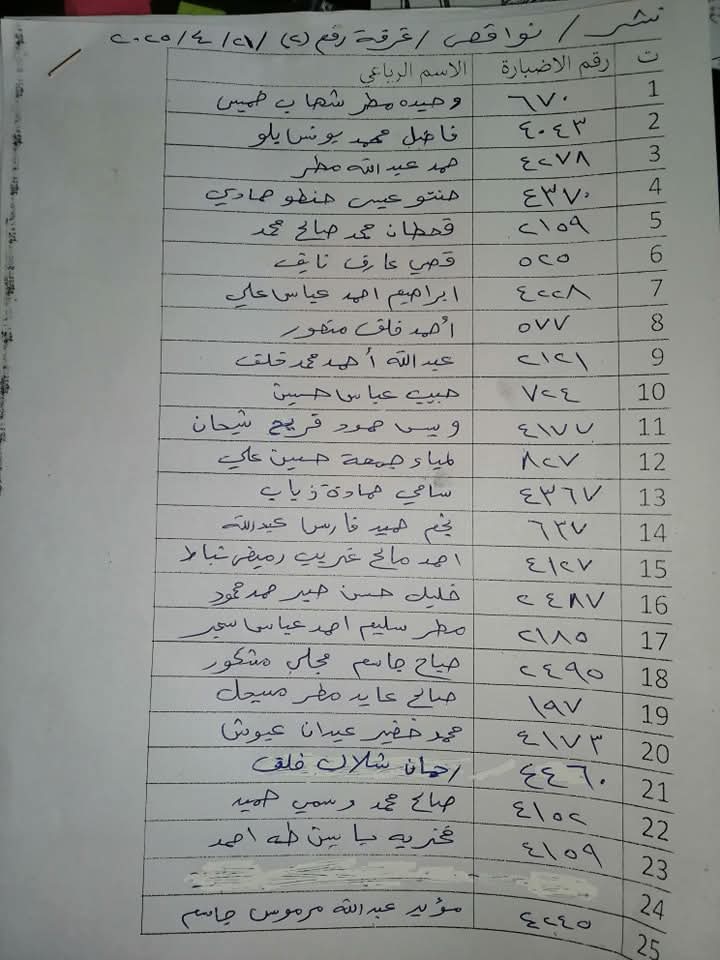 نشر / نواقص / غرفة رقم (٢) / ٢١ / ٤ / ٢٠٢٥
ت رقم الاضبارة الاسم الرباعي
1 ٦٧٠ وحيده مطر شهاب خميس
2 ٤٠٤٣ فاضل محمد يونس ايلو
3 ٤٢٧٨ حمد عبد الله مطر
4 ٤٣٧٠ حنتو عيسى حنطو حمادي
5 ٢١٥٩ قحطان محمد صالح محمد
6 ٥٢٥ قصي عارف نايف
7 ٤٢٢٨ ابراهيم احمد عباس علي
8 ٥٧٧ أحمد فلق منصور
9 ٢١٢١ عبد الله أحمد محمد خلف
10 ٧٢٤ حبيب عباس حسين
11 ٤١٧٧ ويس حمود فريح شيحان
12 ٨٢٧ لمياء جمعة حسين علي
13 ٤٣٦٧ سامي حمادة ذياب
14 ٦٣٧ نجم حميد فارس عبد الله
15 ٤١٢٧ احمد مالح غريب رميض شباط
16 ٢٤٨٧ خليل حسن حمد محمود
17 ٢١٨٥ مطر سليم احمد عباس
18 ٢٤٩٥ صباح جاسم مجلي مشكور
19 ١٩٧ صالح عايد مطر
20 ٤١٧٣ محمد خضير عيدان عبوش
21 ٤٤٦٠ رحمان شلال خلف
22 ٤١٥٢ صالح محمد وسمي حميد
23 ٤١٥٩ فخريه ياسين طه احمد
24
25 ٤٢٤٥ مؤيد عبد الله مرموس جاسم